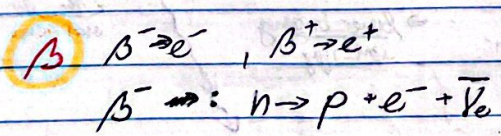 β β⁻→e⁻ , β⁺→e⁺
β⁻ ⇝: n→p+e⁻+ν̅ₑ